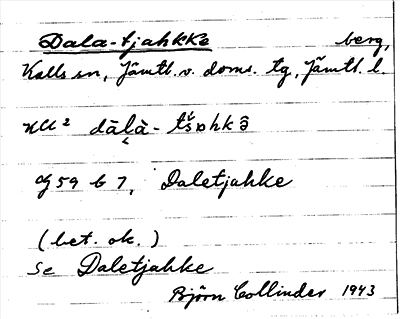 Dala-tjahkke berg,
Kalls sn, Jämtl. v. doms. tg, Jämtl. l.
dāḷà-tš́ɒhkə̂
G 59 b 7, Daletjahke
(bet. ok.)
Se Daletjahke
Björn Collinder 1943